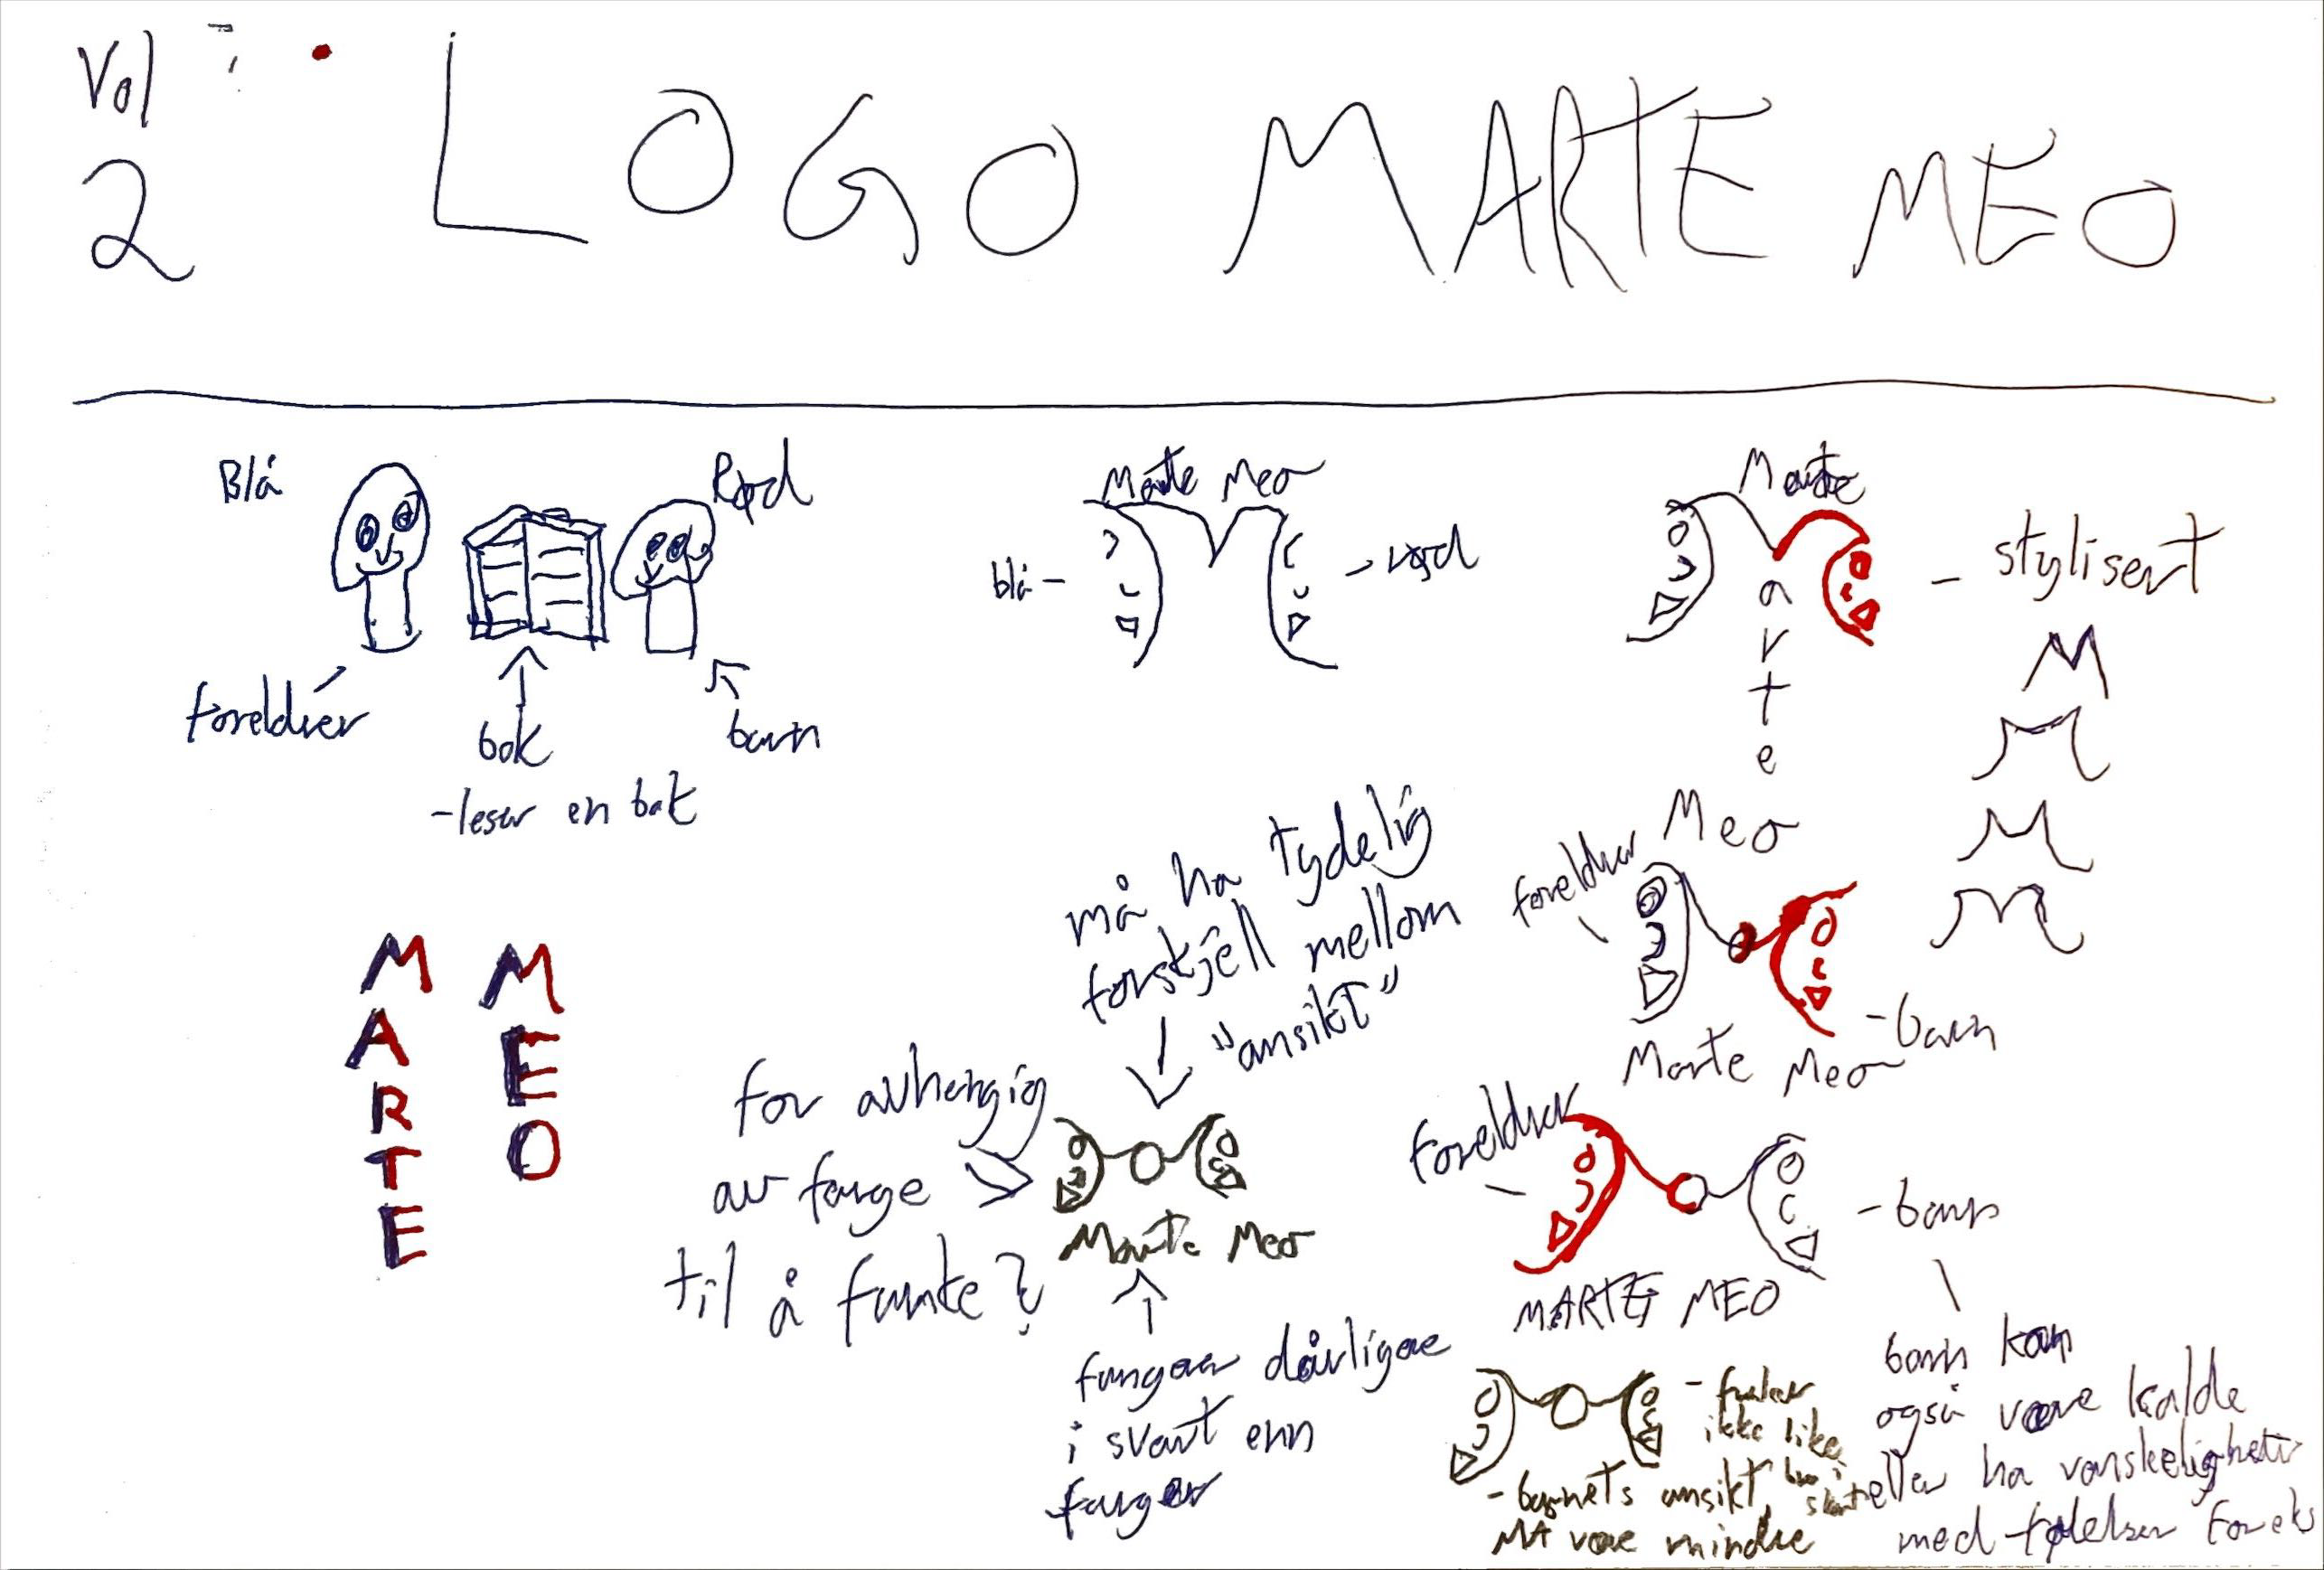 Vol
2
LOGO MARTE MEO
Blå
Rød
forelder
bok
barn
-leser en bok
Marte Meo
blå-
-rød
Marte
a
r
t
e
Meo
- stylisert
M
M
M
M
MARTE
MEO
må ha tydelig
forskjell mellom
"ansikt"
for avhengig
av farge
til å funke?
Marte Meo
fungerer dårligere
i svart enn
farger
forelder
-barn
Marte Meo
forelder
-barn
MARTE MEO
barn kan
også være kalde
eller ha vanskeligheter
med følelser f.eks
- funker
ikke like
bra i
svart
-barnets ansikt
MÅ være mindre